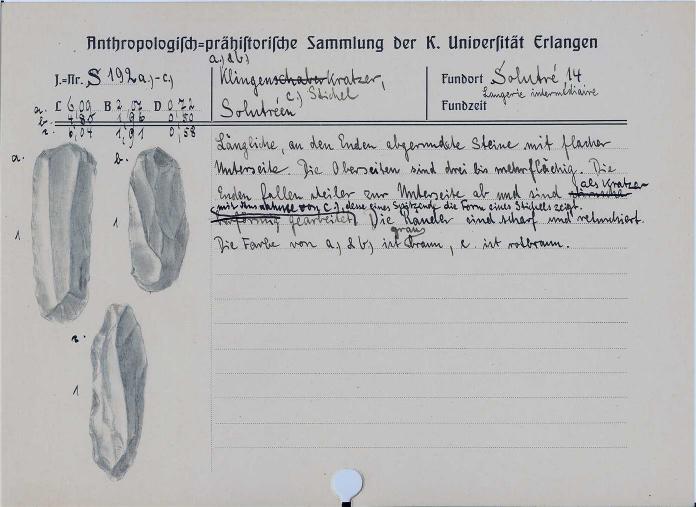 Anthropologisch=prähistorische Sammlung der K. Universität Erlangen
J.=Nr. S 192 a,)-c,)
a. L 6,09 B 2,07 D 0,72
b. 4,80 1,96 0,50
c. 6,04 1,91 0,58
a,) & b,)
Klingenschaber Kratzer,
c.) Stichel
Solutréen
Fundort Solutré 14
Langerie intermédiaire
Fundzeit
Längliche, an den Enden abgerundete Steine mit flacher
Unterseite. Die Oberseiten sind drei bis mehrflächig. Die
Enden fallen steiler zur Unterseite ab und sind als Kratzer
(mit Ausnahme von c.), dene eines Spitzende die Form eines Stichels zeigt.
gearbeitet) Die Ränder sind scharf und retuschiert.
grau
Die Farbe von a,) & b,) ist braun, c. ist rotbraun.
a.
b.
1
1
c.
1